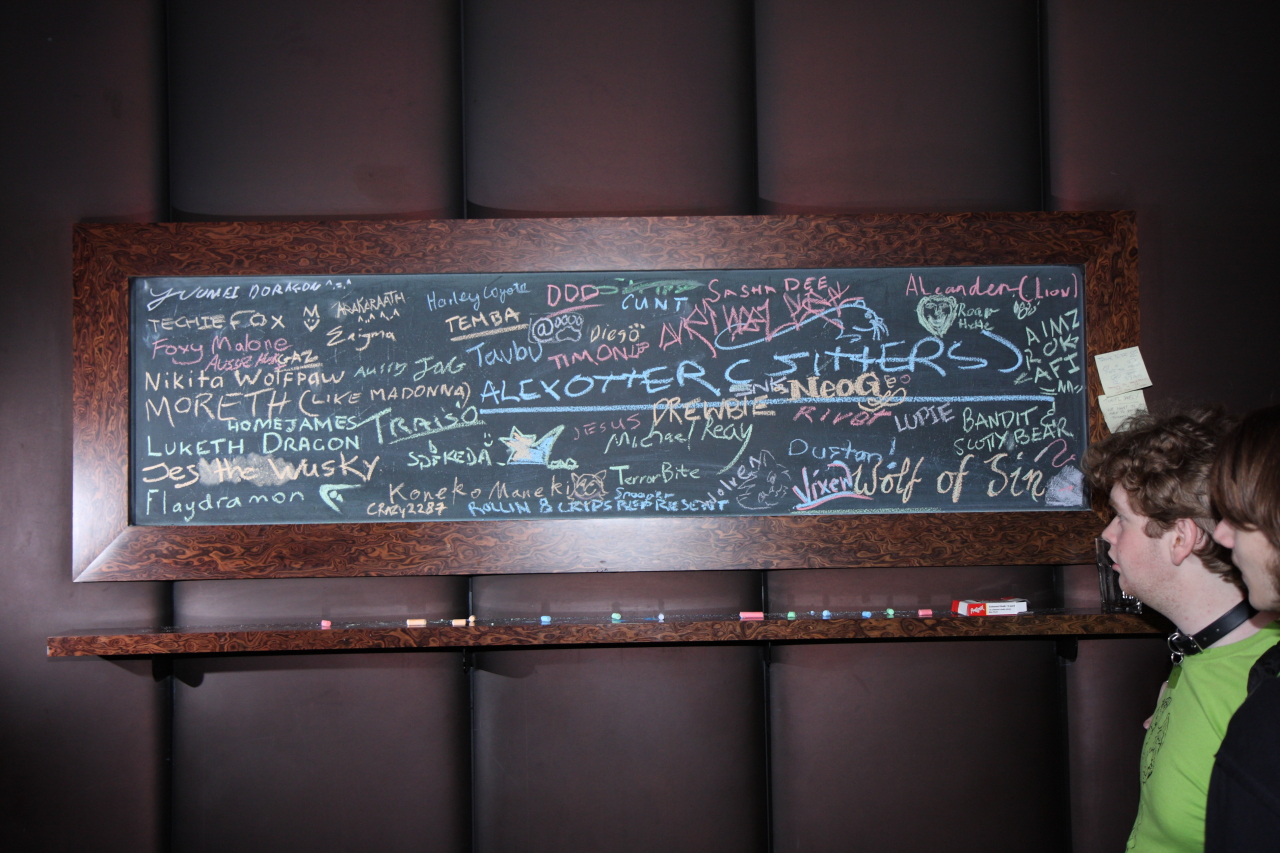 YUUMEI DORAGON ^.^
TECHIE FOX
Foxy Malone
AUSSIE HUSKY
GAZ
Nikita WOLFPAW
MORETH (LIKE MADONNA)
HOMEJAMES
LUKETH DRAGON
Jes the Wusky
Flaydramon
ANAKARAATH
Enigma
AUSSIE JAG
TRAISO
KEDA
Koneko Maneki
CRAZY2287
Harley Coyote
TEMBA
Taubu
DDD
CUNT
@
Diego
TIMON
SASHA DEE
ALEXOTTER (SITTERS)
NeoG
PREWBIE
JESUS
Michael Reay
TerrorBite
Snooper
ROLLIN & CRIPS REPRESENT
Wolven
Dustan!
RIVOT
LUPIE
Vixen
Wolf of Sin
BANDIT &
SCOTTY BEAR
Roar